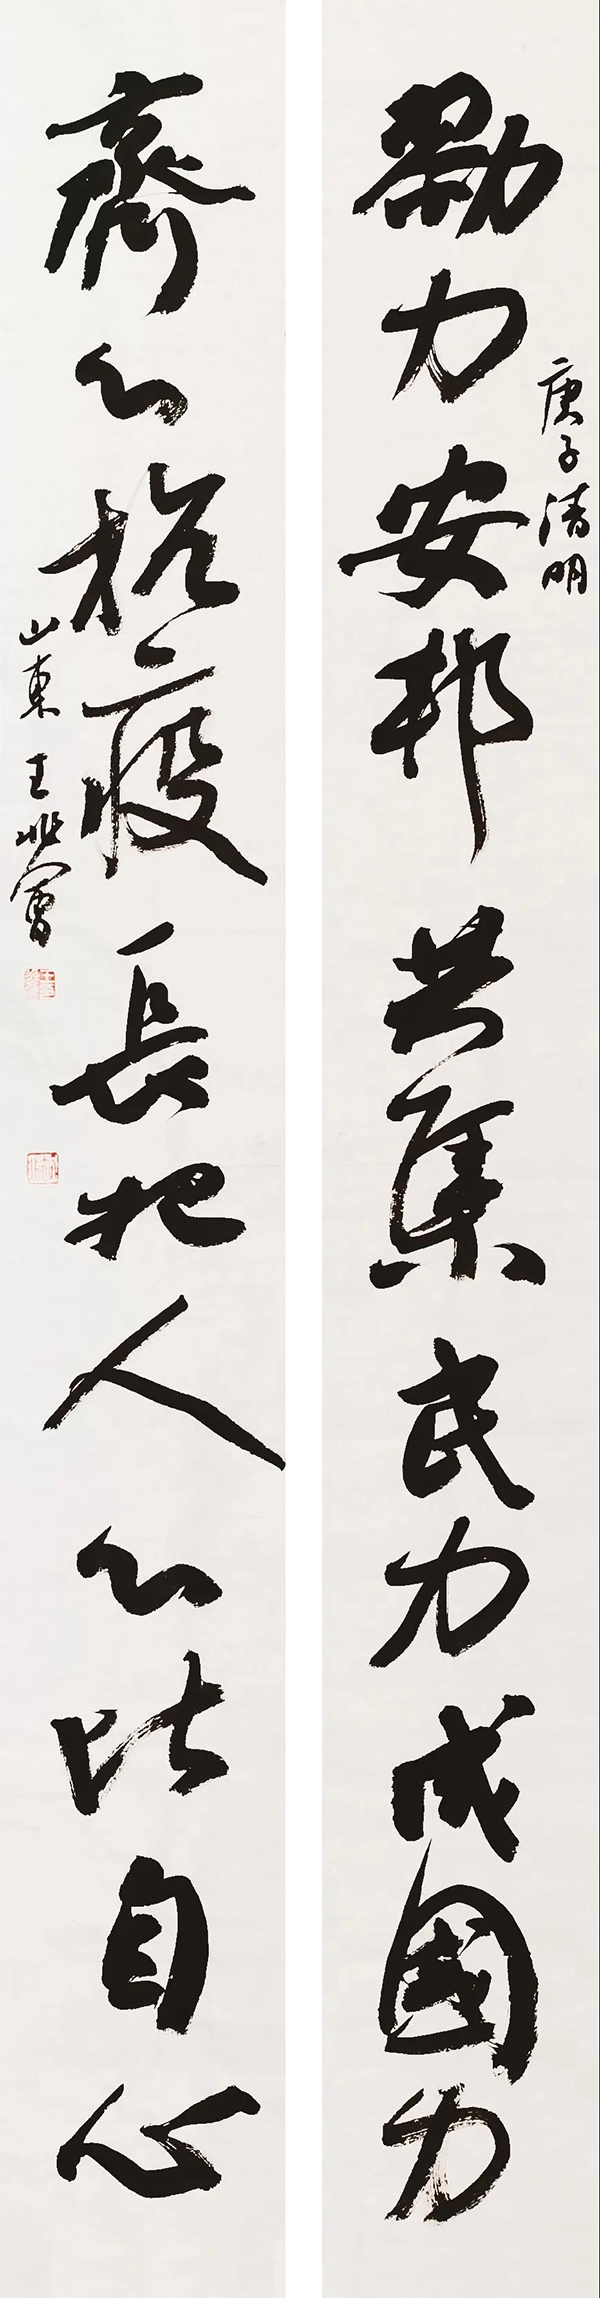 庚子清明
勠力安邦共集民力成國力
齊心抗疫長把人心比自心
山東王兆會